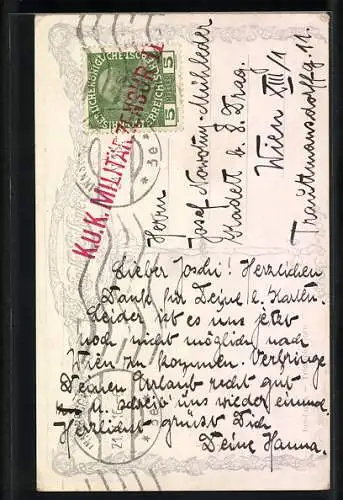 K.u.K. MILITÄRZENSUR
5 5
Herrn
Josef Nowotny-Mühlleder
Kadett k. 8. Drag.
Wien XIII/1
Trauttmansdorffg. 11.
Lieber Joschi! Herzlichen
Dank für Deine l. Karten.
Leider ist es uns jetzt
noch nicht möglich nach
Wien zu kommen. Verbringe
Deinen Urlaub recht gut
u. schreib' uns wieder einmal.
Herzlichst grüsst Dich
Deine Hanna.